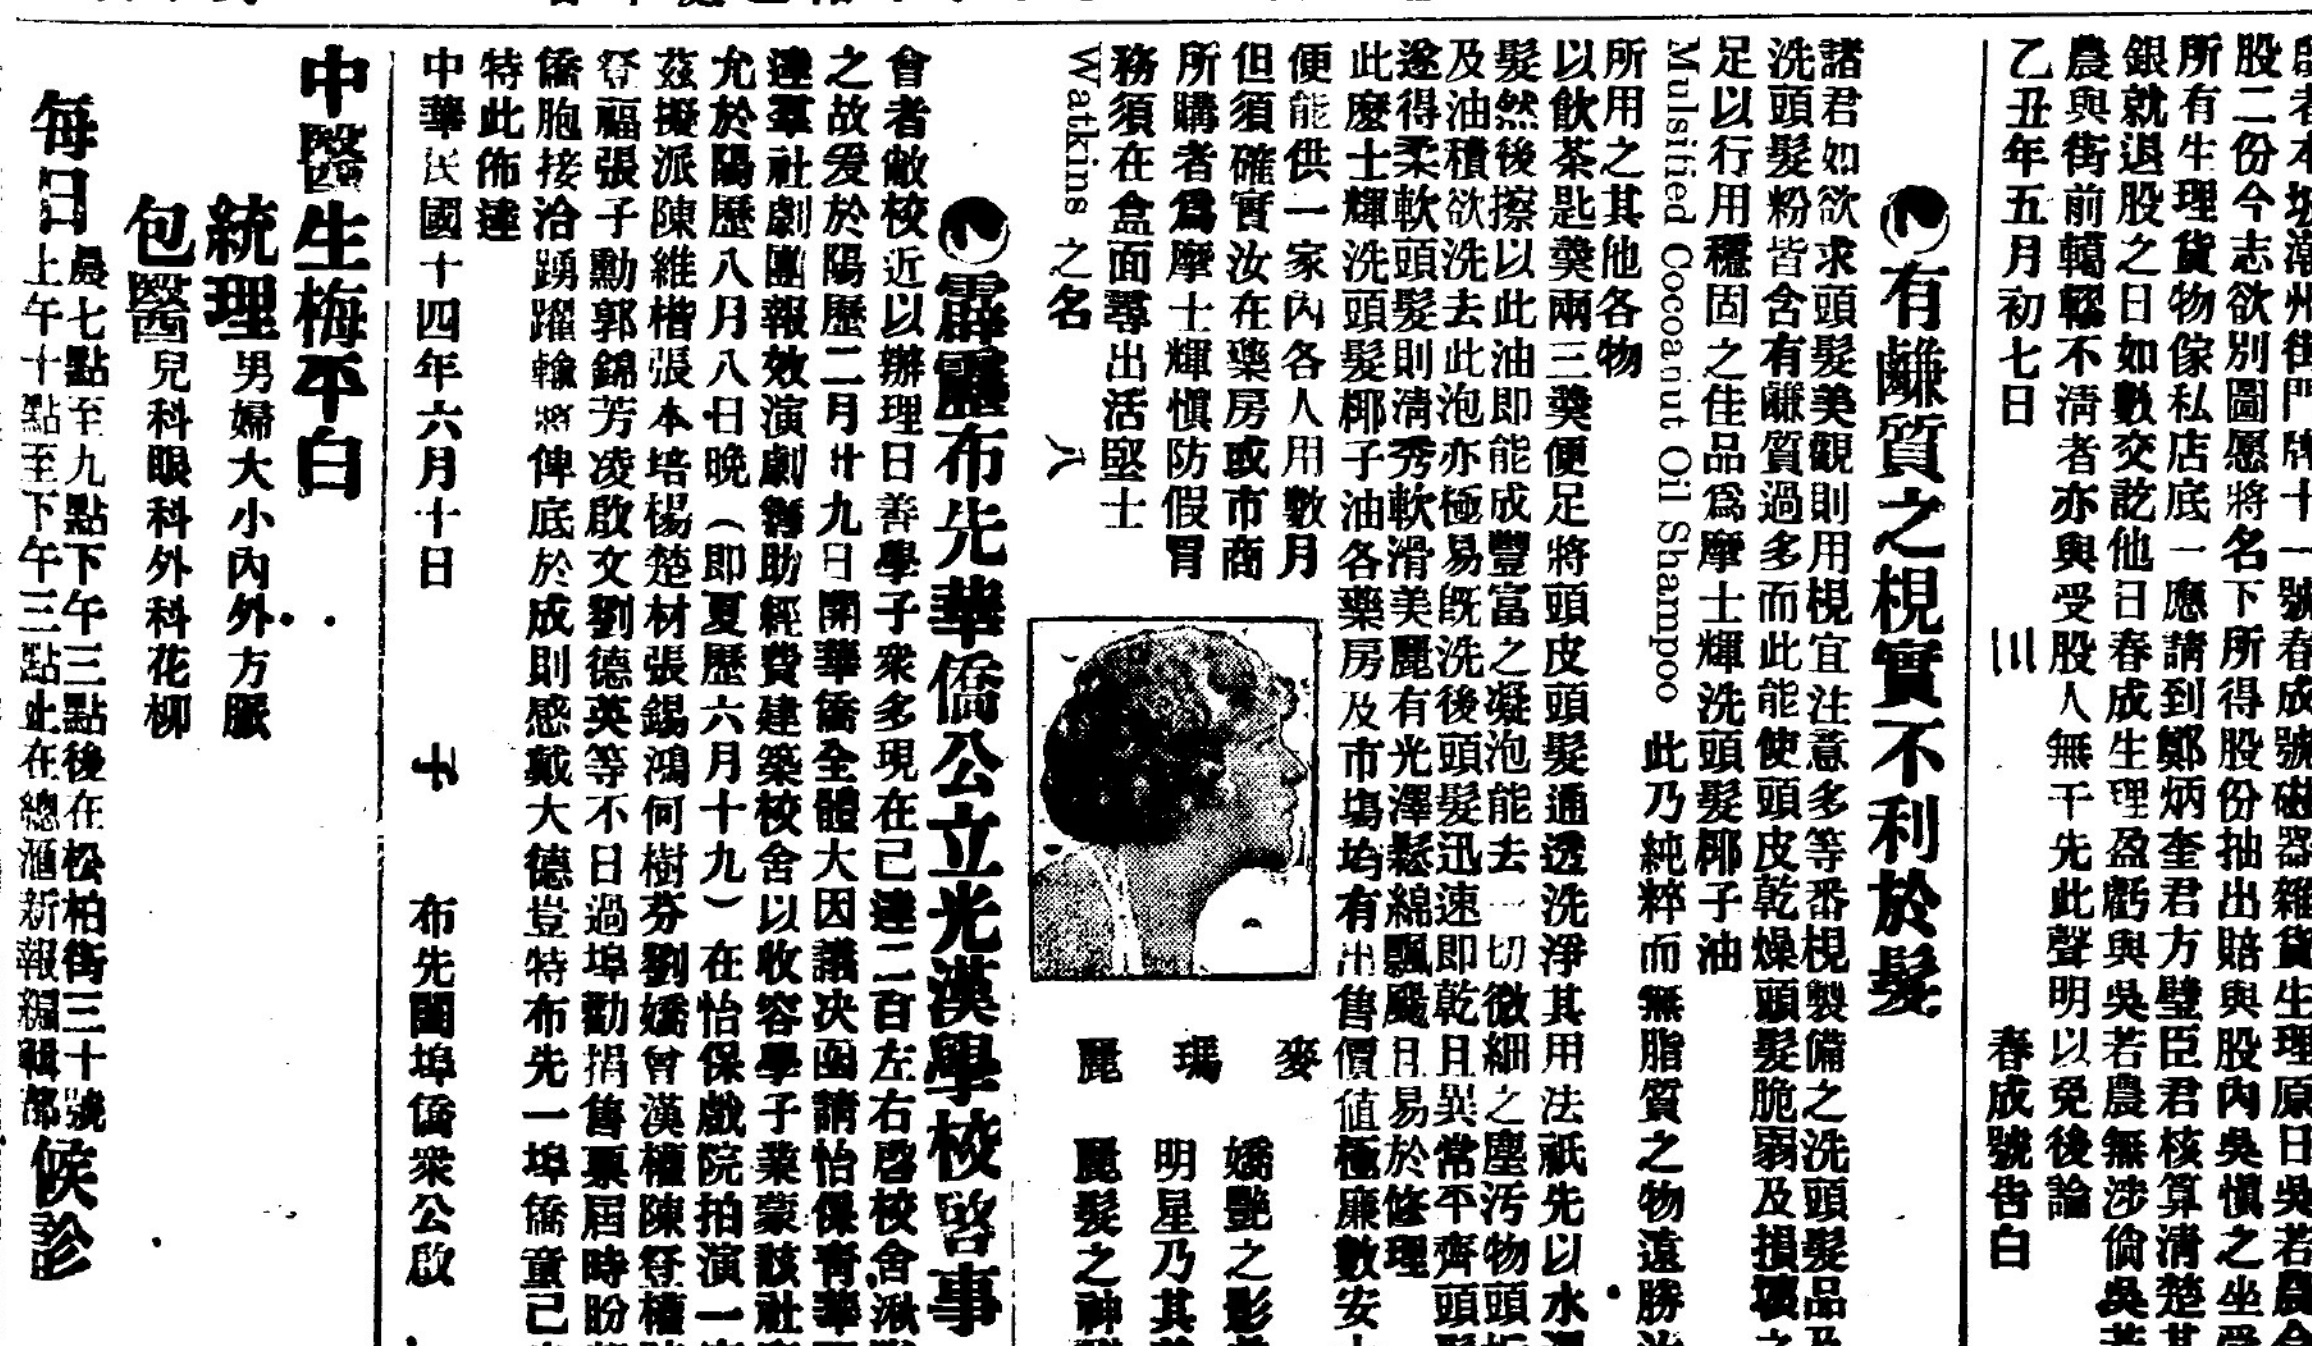 股二份今志欲別圖愿將名下所得股份抽出賠與股內吳慎之坐受
所有生理貨物傢私店底一應請到鄭炳奎君方璧臣君核算清楚其
銀就退股之日如數交訖他日春成生理盈虧與吳若農無涉倘吳若
農與街前轇轕不清者亦與受股人無干先此聲明以免後論
乙丑年五月初七日 〣 春成號告白
有鹻質之梘實不利於髮
諸君如欲求頭髮美觀則用梘宜注意多等番梘製備之洗頭髮品及
洗頭髮粉皆含有鹻質過多而此能使頭皮乾燥頭髮脆弱及損壞之
足以行用穩固之佳品爲摩士輝洗頭髮椰子油
Mulsified Cocoanut Oil Shampoo 此乃純粹而無脂質之物遠勝
所用之其他各物
以飲茶匙羹兩三羹便足將頭皮頭髮通透洗淨其用法祇先以水
髮然後擦以此油即能成豐富之凝泡能去一切微細之塵污物頭
及油積欲洗去此泡亦極易旣洗後頭髮迅速即乾且異常平齊頭
遂得柔軟頭髮則清秀軟滑美麗有光澤鬆綿飄颺且易於修理
此麼士輝洗頭髮椰子油各藥房及市塲均有出售價值極廉數安
便能供一家內各人用數月
但須確實汝在藥房或市商
所購者爲摩士輝愼防假冒
務須在盒面尋出活堅士
Watkins 之名 八
麥瑪麗
嬌艷之影
明星乃其
麗髮之神
霹靂布先華僑公立光漢學校啓事
會者敝校近以辦理日善學子衆多現在已達二百左右啓校舍湫
之故爰於陽歷二月廿九日開華僑全體大因議决函請怡保靑華
達羣社劇團報效演劇籌助經費建築校舍以收容學子業蒙該社
允於陽歷八月八日晚（即夏歷六月十九）在怡保戲院拍演一
茲擬派陳維楷張本培楊楚材張錫鴻何樹芬劉嬌曾漢權陳登權
登福張子勳郭錦芳凌啟文劉德英等不日過埠勸捐售票屆時盼
僑胞接洽踴躍輸將俾底於成則感戴大德豈特布先一埠僑童已
特此佈達
中華民國十四年六月十日 布先閭埠僑衆公啟
中醫生梅平白
統理男婦大小內外方脈
包醫兒科眼科外科花柳
每日
晨七點至九點下午三點後在松柏街三十號
上午十點至下午三點止在總滙新報編輯部
候診